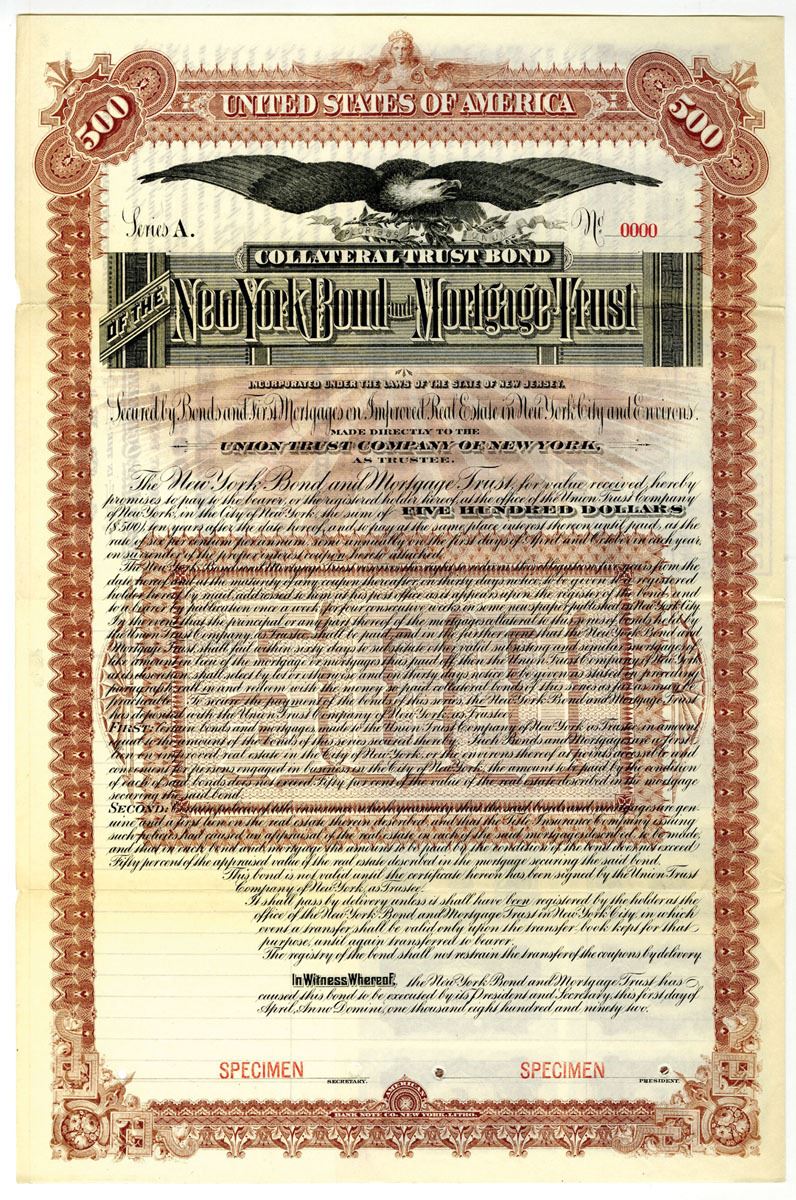 500
UNITED STATES OF AMERICA
500
E PLURIBUS UNUM
Series A.
No 0000
COLLATERAL TRUST BOND
OF THE
New York Bond and Mortgage Trust
INCORPORATED UNDER THE LAWS OF THE STATE OF NEW JERSEY.
Secured by Bonds and First Mortgages on Improved Real Estate in New York City and Environs.
MADE DIRECTLY TO THE
UNION TRUST COMPANY OF NEW YORK,
AS TRUSTEE.
The New York Bond and Mortgage Trust, for value received, hereby
promises to pay to the bearer, or the registered holder hereof, at the office of the Union Trust Company
of New York, in the City of New York, the sum of FIVE HUNDRED DOLLARS
($500) ten years after the date hereof, and to pay at the same place interest thereon until paid, at the
rate of six per centum per annum, semi annually on the first days of April and October in each year,
on surrender of the proper interest coupon hereto attached.
The New York Bond and Mortgage Trust reserves the right to return this obligation five years from the
date hereof and at the maturity of any coupon thereafter, on thirty days notice to be given to a registered
holder hereof by mail, addressed to him at his post office as it appears upon the register of the bonds, and
to a bearer by publication once a week for four consecutive weeks in some newspaper published in New York City.
In the event that the principal or any part thereof of the mortgages collateral to this series of bonds held by
the Union Trust Company, as Trustee, shall be paid, and in the further event that the New York Bond and
Mortgage Trust shall fail within sixty days to substitute a valid subsisting and similar mortgage of
like amount in lieu of the mortgage or mortgages thus paid off, then the Union Trust Company of New York
at its discretion shall select by lot or otherwise and on thirty days notice to be given as stated in preceding
paragraph call in and redeem with the money so paid collateral bonds of this series as far as may be
practicable. To secure the payment of the bonds of this series, the New York Bond and Mortgage Trust
has deposited with the Union Trust Company of New York as Trustee
FIRST: Certain bonds and mortgages, made to the Union Trust Company of New York as Trustee in amount
equal to the amount of the bonds of this series secured thereby. Such Bonds and Mortgages are a first
lien on improved real estate in the City of New York, or its environs thereof at points accessible and
convenient for persons engaged in business in the City of New York, the amount to be paid by the condition
of each of said bonds does not exceed Fifty per cent of the value of the real estate described in the mortgage
securing the said bond.
SECOND: Certain policies of title insurance which guaranty that the said bonds and mortgages are gen-
uine and a first lien on the real estate therein described, and that the Title Insurance Company issuing
such policies had caused an appraisal of the real estate in each of the said mortgages described, to be made,
and that in each bond and mortgage the amount to be paid by the condition of the bond does not exceed
Fifty per cent of the appraised value of the real estate described in the mortgage securing the said bond.
This bond is not valid until the certificate hereon has been signed by the Union Trust
Company of New York, as Trustee.
It shall pass by delivery unless it shall have been registered by the holder at the
office of the New York Bond and Mortgage Trust in New York City, in which
event a transfer shall be valid only upon the transfer book kept for that
purpose, until again transferred to bearer.
The registry of the bond shall not restrain the transfer of the coupons by delivery.
In Witness Whereof, the New York Bond and Mortgage Trust has
caused this bond to be executed by its President and Secretary, this first day of
April, Anno Domini, one thousand eight hundred and ninety two.
SPECIMEN
SECRETARY.
SPECIMEN
PRESIDENT.
AMERICAN
BANK NOTE CO. NEW YORK, LITHO.